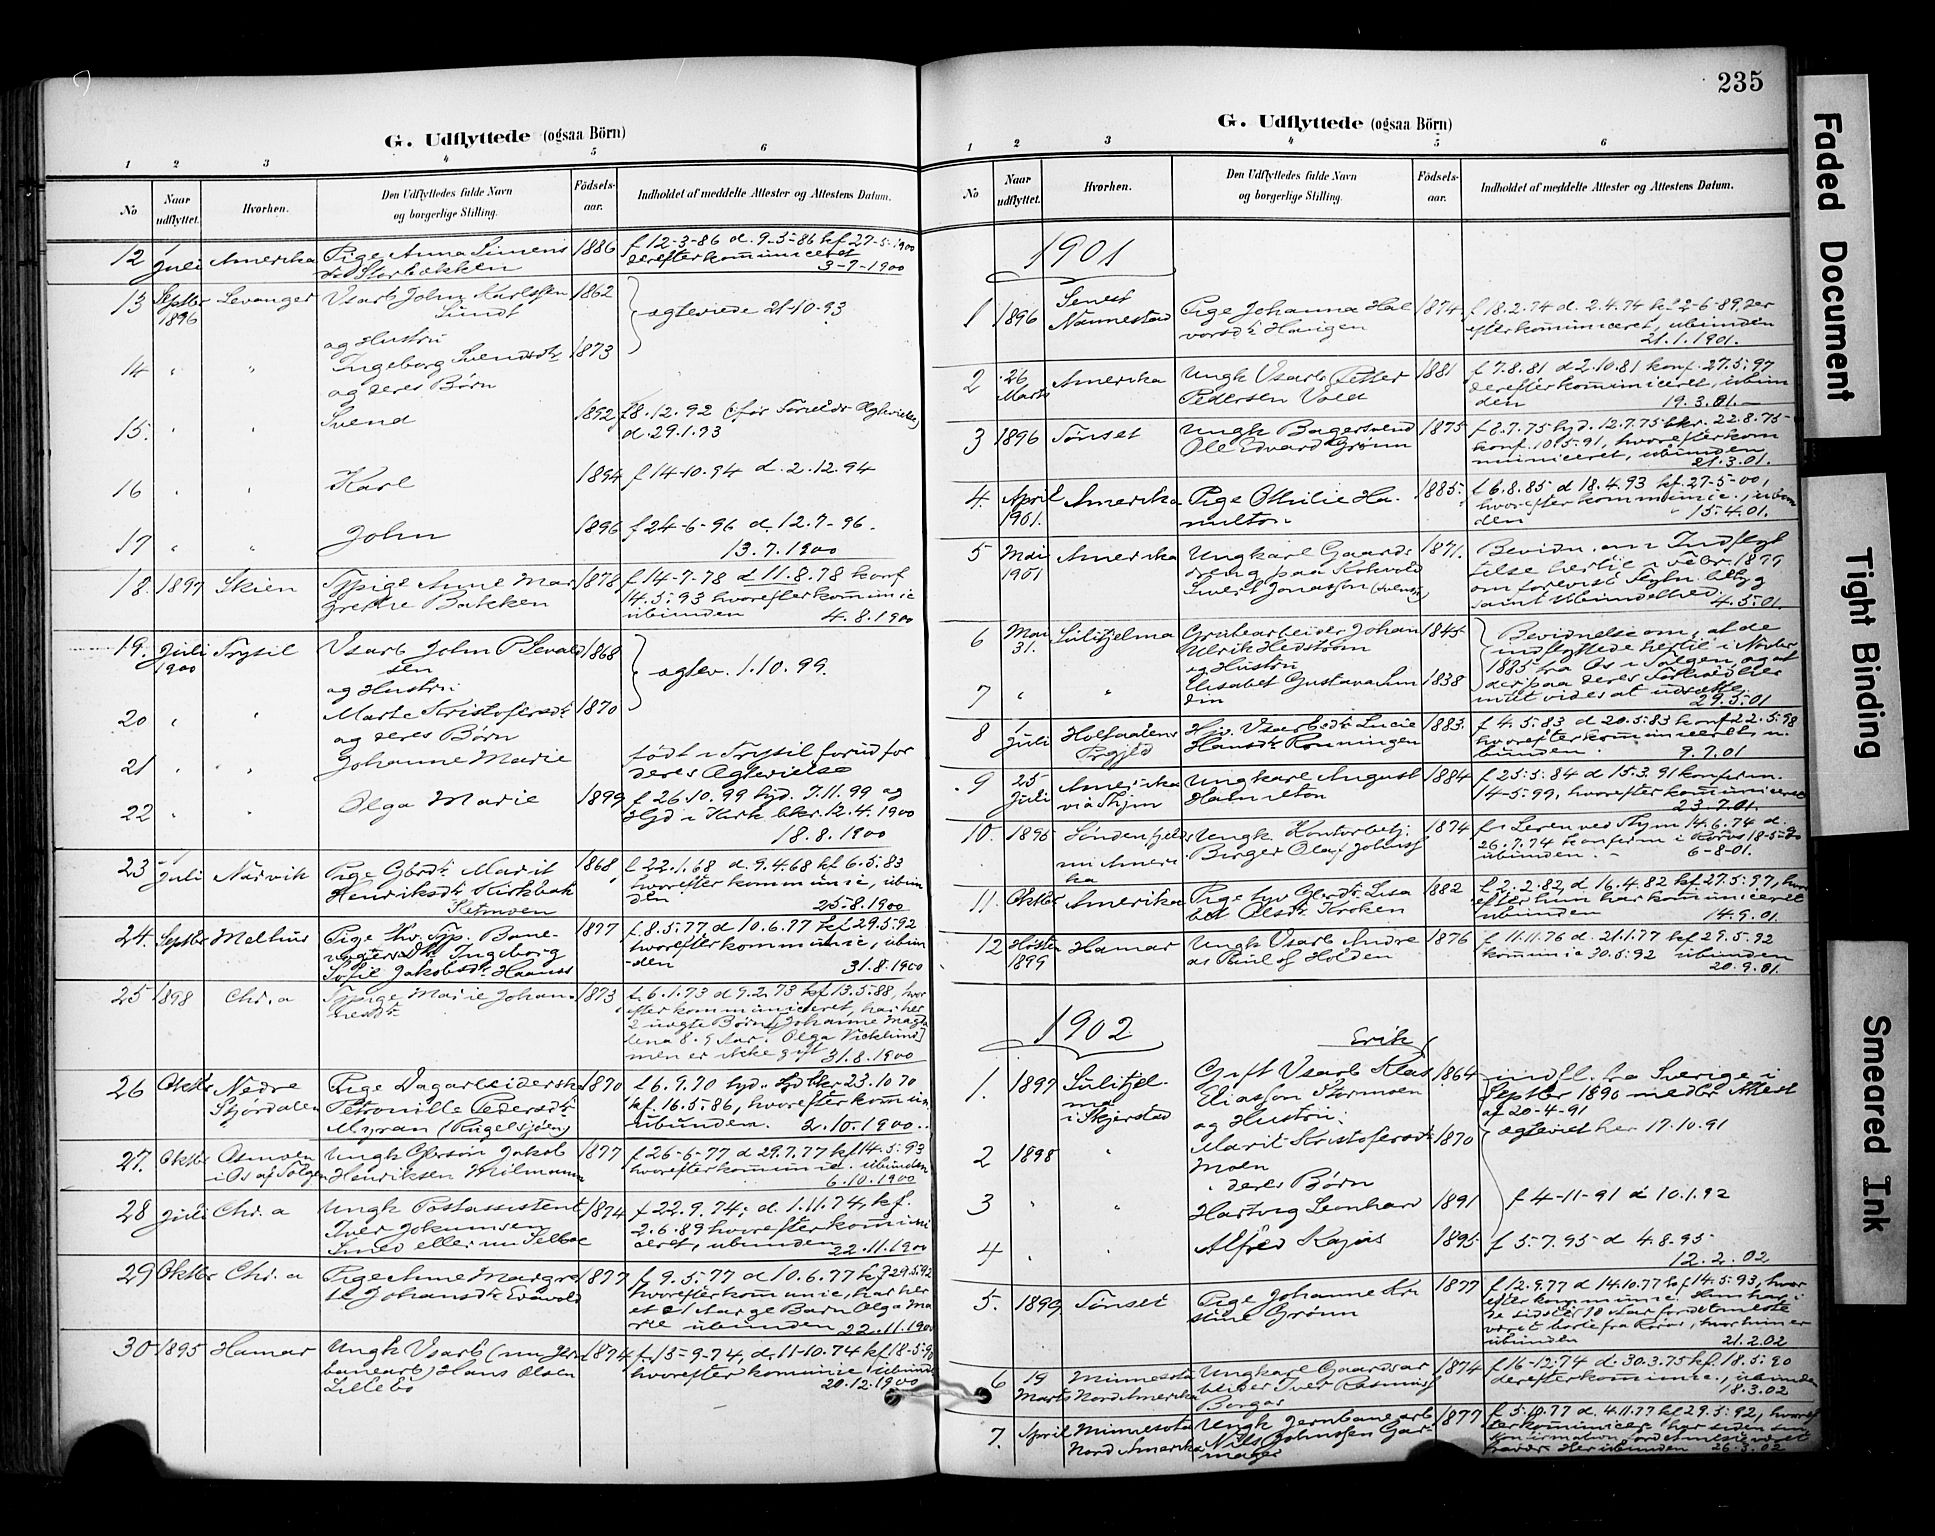 G. Udflyttede (ogsaa Börn)
1 2 3 4 5 6
No
Naar udflyttet.
Hvorhen.
Den Udflyttedes fulde Navn og borgerlige Stilling.
Födsels-aar.
Indholdet af meddelte Attester og Attestens Datum.
12 Juli Amerika Pige Anna Simens 1886 f 12-3-86 d. 9-5-86 kf 27-5-1900
derefter kommuniceret
3-7-1900
13 Septbr Levanger Vsarb John Karlssen 1862
1896 Sundt ægteviede 21-10-93
og Hustru
14 " " Ingeborg Svendsdtr 1873
og deres Børn
15. " " Svend 1892 f 8.12.92 (før Foreldr Ægtevielse)
d. 29.1.93
16 " " Karl 1894 f 14-10.94 d. 2.12.94
17 " " John 1896 f 24-6-96 d. 12.7-96.
13.7.1900
18. 1897 Skien Tjpige Anne Mar 1878 f 14-7-78 d 11.8.78 konf
grethe Bakken 14.5.93 hvorefter kommunic
ubunden 4.8.1900
19. Juli Trysil Vsarb John P. Sevald 1868
1900 sen ægtev. 1.10.99.
og Hustru
20 " " Marte Kristofersdtr 1870
og deres Børn
21 " " Johanne Marie født i Trysil forud for
deres Ægtevielse
22 " " Olga Marie 1899 f 26.10.99 hjd. 7.11.99 og
i Kirk bkr. 12.4.1900
18.8.1900
23 Juli Narvik Pige Gbrdtr Marit 1868 f 22.1.68 d. 9.4.68 kf 6.5.83
Henriksdtr Kirkbak hvorefter kommunic, ubun
den
25-8.1900
24. Septbr Melhus Pige Bane- 1877 f. 8.5.77 d 10.6.77 kf 29.5.92
Ingeborg hvorefter kommunic, ubun
Sofie Jakobsdtr Haanss -den 31.8.1900
25 1898 Chr.a Tjpige Marie Johan- 1873 f. 6.1.73 d 9.2.73 kf 13.5.88, hvor
nesdtr efter kommuniceret, har her
2 uægte Børn [Johanne Magda
lena 8.9 Aar. Olga
men er ikke gift 31.8.1900
26 Oktbr Nedre Pige Dagarbeiderske 1870 f. 6.9.70 hjd. bkr. 23.10.70
Stjördalen Petronille Pedersdtr kf. 16.5.86, hvorefter kommun
Myran (Rugelsjøen) ubunden. 2.10.1900.
27. Oktbr Osmoen Ungk Jakob 1877 f 26-6-77 d 29.7.77 kf 14.5.93
i Os af Tolgen Henriksen hvorefter kommunic. ubunden
6.10.1900
28 Juli Chr.a Ungk Postassistent 1874 f 22.9.74; d. 1.11.74, kf.
Iver Jokumsen 2.6.89 hvorefter kommuni
eller nu Selboe ceret, ubunden 22.11.1900
29 Oktbr Chr.a Pige Anne Margre 1877 f. 9.5.77 d 10.6.77 kf 29.5.92
te Johansdtr hvorefter kommunic, har her
Barn Olga Ma
rie ubunden 22.11.1900
30 1895 Hamar Ungk Vsarb (nu Jern 1874 f. 15-9-74, d. 11-10.74 kf 18-5-90
banearb) Hans Olsen hvorefter kommunic ubunden
Lillebo 20.12.1900
235
G. Udflyttede (ogsaa Börn)
1 2 3 4 5 6
No
Naar udflyttet.
Hvorhen.
Den Udflyttedes fulde Navn og borgerlige Stilling.
Födsels-aar.
Indholdet af meddelte Attester og Attestens Datum.
1901
1 1896 Senest Pige Johanna Hal 1874 f 18.2.74 d. 2.4.74 kf 2-6-89, der
Nannestad vorsdtr Haugen efter kommuniceret, ubunden
21.1.1901.
2 26 Amerika Ungk Vsarb Petter 1881 f 7.8.81 d 2.10.81 konf. 27.5.97
Marts Pedersen Vold derefter kommuniceret, ubun
den 19.3.01.
3 1896 Tönset Ungk Bagersvend 1875 f 8.7.75 hjd. 12.7.75 bkr. 22.8.75
Ole Edvard Grönn konf. 10.5.91, hvorefter kom
municeret, ubunden
21.3.01.
4. April Amerika Pige Othilie Ha- 1885. f 6.8.85 d 18.4.93 kf. 27-5-00,
1901. milton hvorefter kommunic., ubun
den 15.4.01.
5 Mai Amerika Ungkarl Gaards 1871. Bevidn. om Indflyt
1901 dreng paa Kokvold telse hertil i Febr. 1899
Jonasson (svensk) om forevist
samt Ubundethed. 4.5.01.
6 Mai Sulitjelma Grubearbeider Johan 1845 Bevidnelse om, at de
31. Ulrik Hedström indflyttede hertil i Novbr
og Hustru 1885 fra Os i Tolgen, og at
7 " " Elisabet Gustava 1838 der paa deres Forhold her
din intet vides at udsætte.
29.5.01
8 Juli Holtaalens Vsarbdtr Lucie 1883. f. 4.5.83 d 20.5.83 konf 22.5.98
Prgjld Hansdtr Rønningen hvorefter kommuniceret, u-
bunden. 9.7.01
9 25 Amerika Ungkarl August 1884 f 25.5.84 d 15.3.91 konfirm.
Juli via Thjm Hamilton 14-5.99, hvorefter kommuniceret
23.7.01.
10. 1895 Söndenfjelds Ungk Kontorbetj. 1874 f i Leren ved Thjm 14.6.74 d.
nu Ameri Birger Olaf Johnss 26.7.74 konfirm i Röros 18-5-90
ka ubunden. 6-8-01.
11. Oktbr Amerika Pige hvv Gbrdtr Lisa 1882 f. 2.2.82, d. 16.4.82 kf. 27.5.97, hvor
bet Olsdtr Kroken efter hun har kommuniceret
ubunden 14.9.01.
12 Høsten Hamar Ungk Vsarb Andre 1876 f 11.11.76 d. 21.1.77 kf 29.5.92
1899 as Paul Holden kommunic 30.5.92 ubunden
20.9.01.
1902
Erik
1. 1897 Sulitjel- Gift Vsarb Klas 1864 indfl. fra Sverige i
ma Eliasson Stormoen Septbr 1890 medbr Attest
i Skjerstad og Hustru: af 20-4-91
2 1898 " Marit Kristofersdtr 1870 ægteviet her 17.10.91
Moen
deres Børn
3 " " Hartvig Leonhard 1891 f 4-11-91 d 10.1.92
4 " " Alfred Kajus 1895 f 5-7.95 d 4.8.95
12.2.02
5. 1899 Tönset Pige Johanne Kri 1877 f. 12.9.77 d 14.10.77 kf 14.5.93, hvor
stine Grönn efter kommunic. Hun har i
de sidste 10 Aar fordetmeste
været borte fra Röros, hvor hun er
ubunden 21.2.02
6 19 Minnesota Ungkarl Gaardsar 1874 f 16-12.74 d. 30.3.75 kf. 18.5.90
Marts Nord Amerika beider Iver Rasmuss derefter kommunic., ubunden
Borgos 18.3.02
7. April Minnesota Ungk Jernbanearb 1877 f. 5.10.77 d. 4.11.77 kf 29.5.92, hvoref
Nord Amerika Nils Johnssen Gar- ter kommunicer. har siden sin
mager Konfirmation fordetmeste været
herfra. Her ubunden 26.3.02
Faded Document
Tight Binding
Smeared Ink